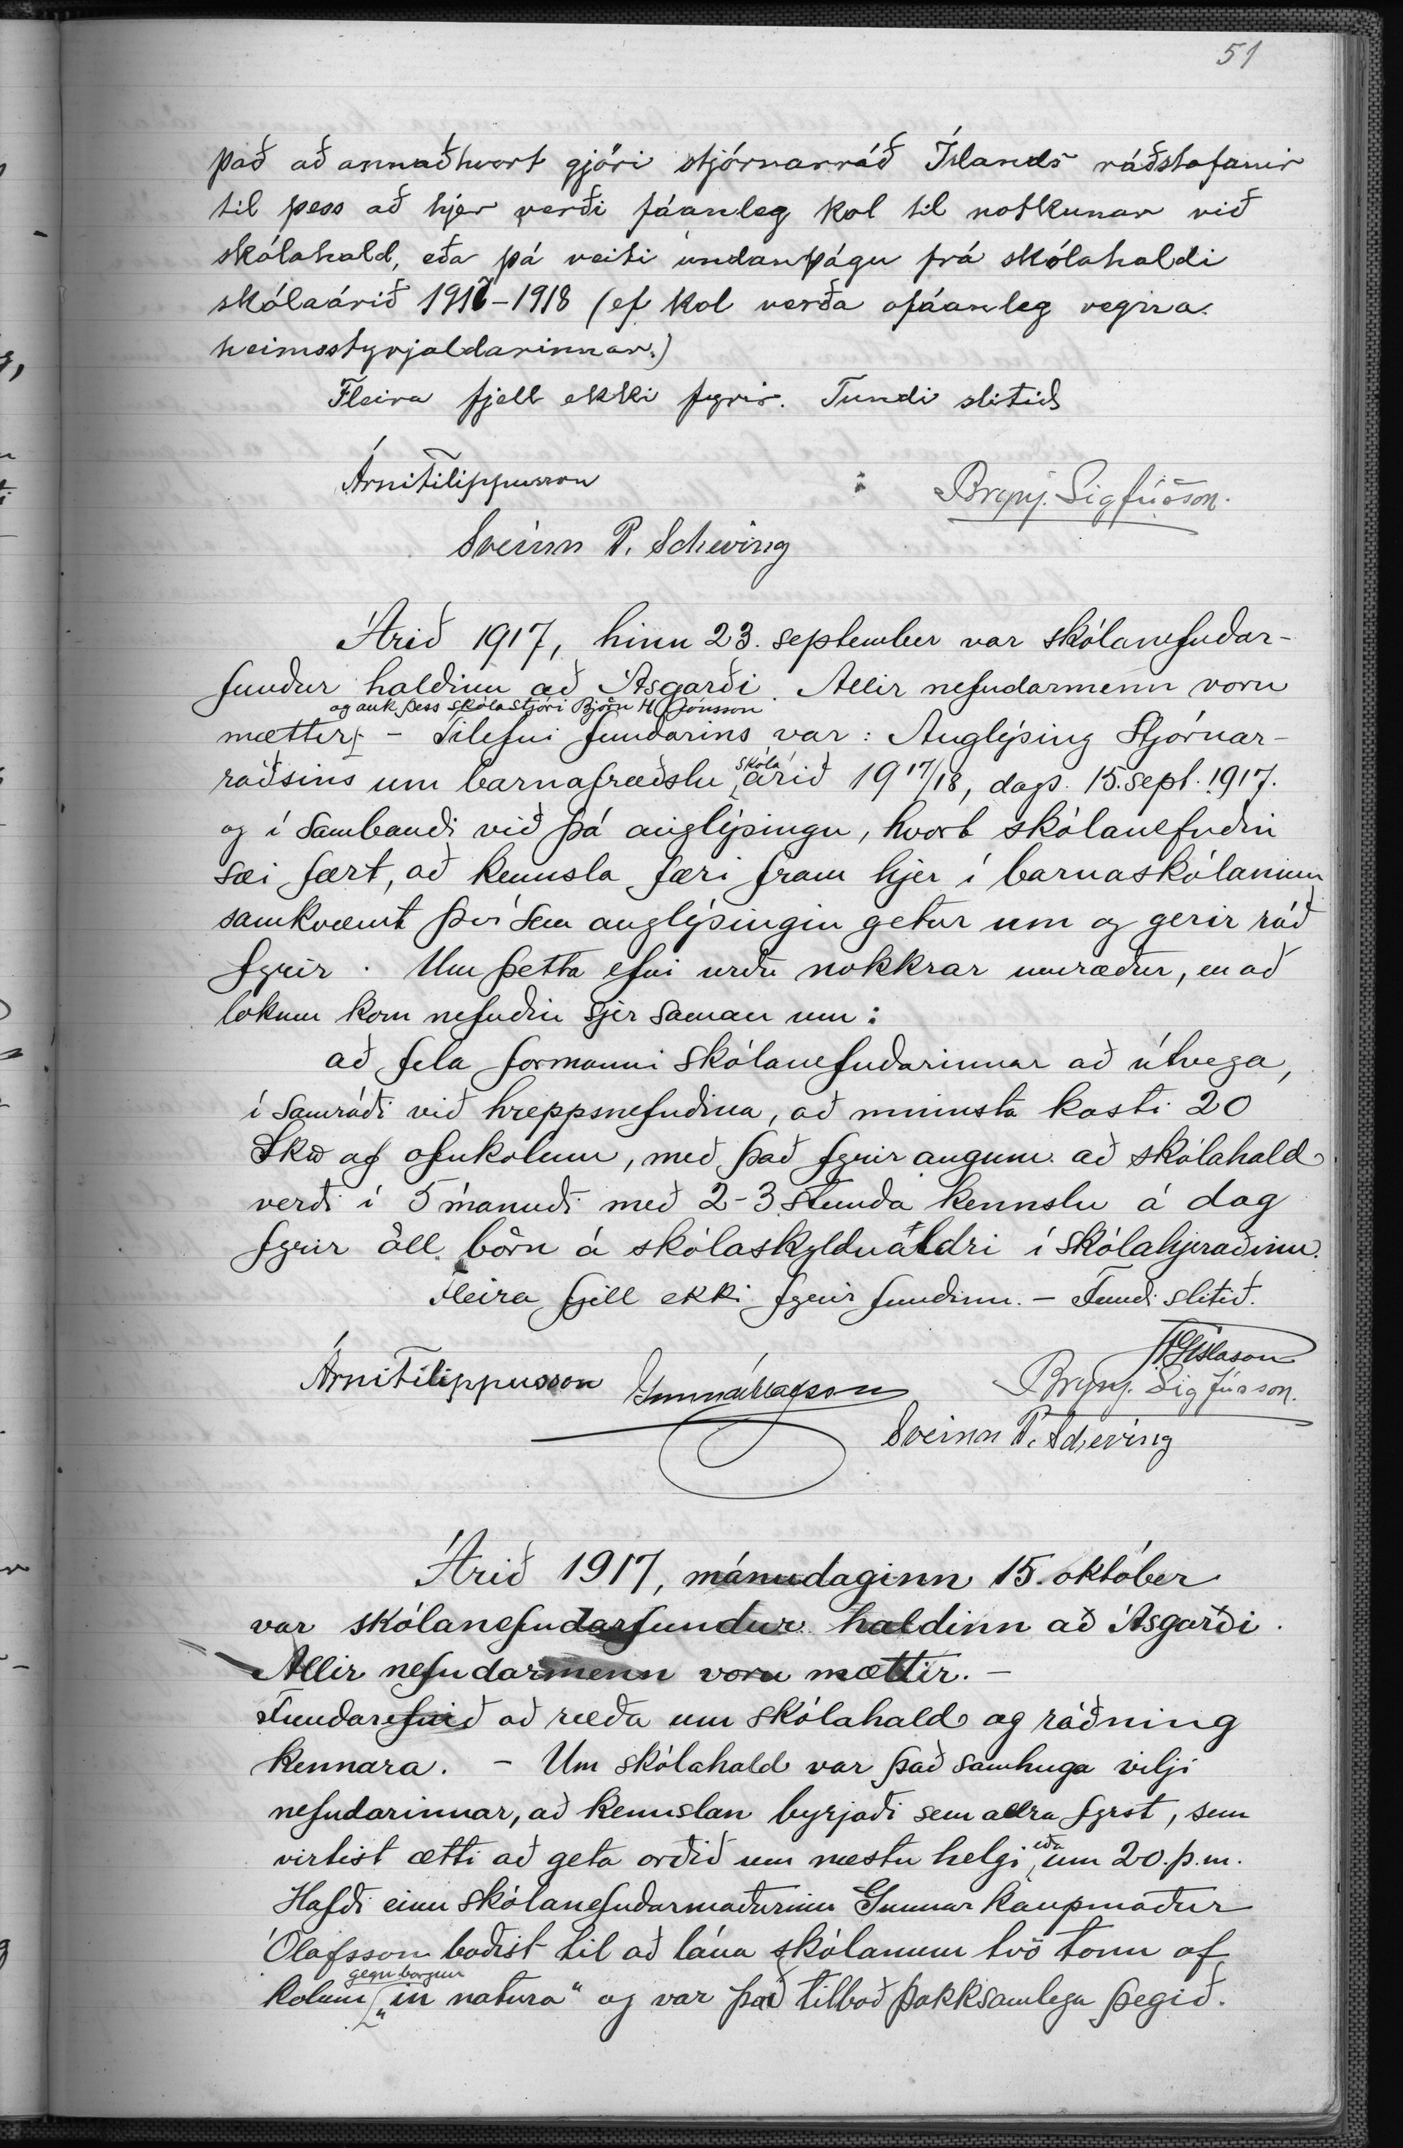 51
það að annaðhvort gjöri stjórnarráð Íslands ráðstafanir
til þess að hjer verði fáanleg kol til notkunar við
skólahald, eða þá veiti undanþágu frá skólahaldi
skólaárið 1917-1918 (ef kol verða ofáanleg vegna
heimsstyrjaldarinnar.)
Fleira fjell ekki fyrir. Fundi slitið
Árni Filippusson
Brynj. Sigfússon.
Sveinn P. Scheving
Árið 1917, hinn 23. september var skólanefndar-
fundur haldinn að Ásgarði. Allir nefndarmenn voru
og auk þess skólastjóri Björn H Jónsson
mættir - Tilefni fundarins var: Auglýsing Stjórnar-
ráðsins um barnafræðslu skóla árið 19 17/18, dags. 15. sept. 1917.
og í sambandi við þá auglýsingu, hvort skólanefndin
sæi fært, að kennsla færi fram hjer í barnaskólanum
samkvæmt því sem auglýsingin getur um og gerir ráð
fyrir. Um þetta efni urðu nokkrar umræður, en að
lokum kom nefndin sjer saman um:
að fela formanni skólanefndarinnar að útvega,
í samráði við hreppsnefndina, að minnsta kosti 20
Skd af ofnkolum, með það fyrir augum að skólahald
verði í 5 mánuði með 2-3 stunda kennslu á dag
fyrir öll börn á skólaskyldualdri í skólahjeraðinu.
Fleira fjell ekki fyrir fundinn. - Fundi slitið.
Árni Filippusson
Gunnar Ólafsson
Gíslason
Brynj. Sigfússon.
Sveinn P. Scheving
Árið 1917, mánudaginn 15. október
var skólanefndarfundur haldinn að Ásgarði.
Allir nefndarmenn voru mættir. -
Fundarefnið að ræða um skólahald og ráðning
kennara. - Um skólahald var það samhuga vilji
nefndarinnar, að kennslan byrjaði sem allra fyrst, sem
virtist ætti að geta orðið um næstu helgi, eða um 20. þ.m.
Hafði einn skólanefndarmaðurinn Gunnar kaupmaður
Ólafsson boðist til að lána skólanum tvö tonn af
kolum gegn borgun „in natura" og var það tilboð þakksamlega þegið.